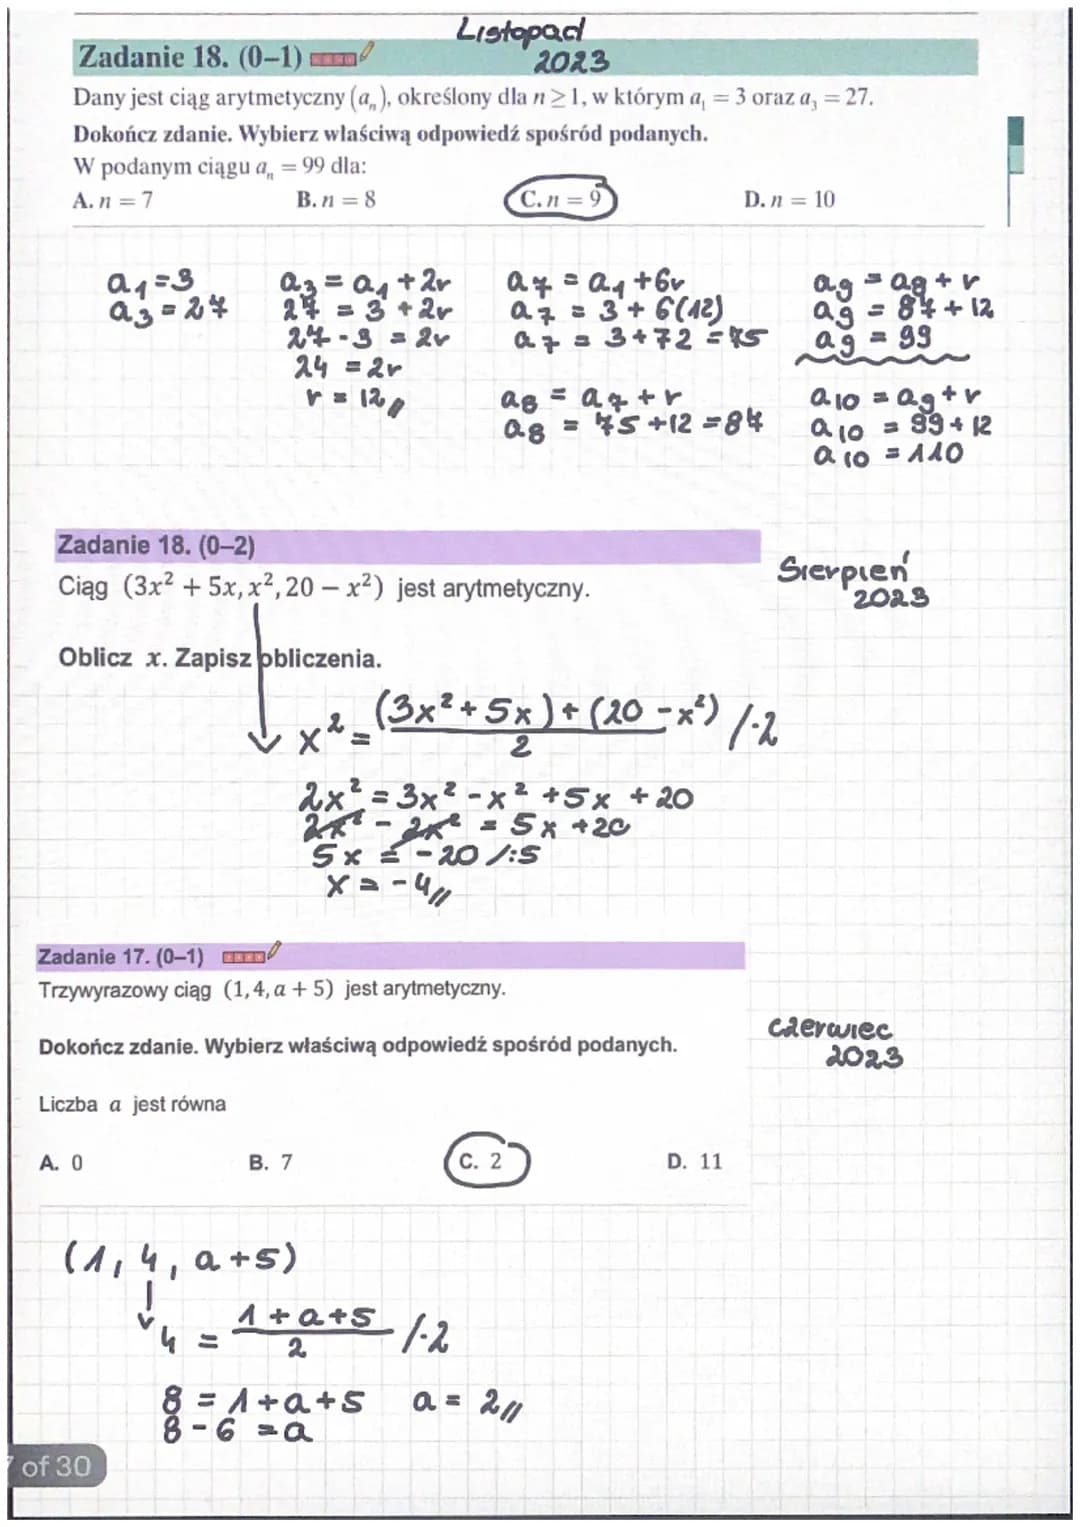 Listopad
2023
Zadanie 18. (0–1)
Dany jest ciąg arytmetyczny (aₙ), określony dla n ≥ 1, w którym a₁ = 3 oraz a₃ = 27.
Dokończ zdanie. Wybierz właściwą odpowiedź spośród podanych.
W podanym ciągu aₙ = 99 dla:
A. n = 7 B. n = 8 C. n = 9 D. n = 10
a₁ = 3
a₃ = 27
a₃ = a₁ + 2r
27 = 3 + 2r
27 - 3 = 2r
24 = 2r
r = 12 //
a₇ = a₁ + 6r
a₇ = 3 + 6(12)
a₇ = 3 + 72 = 75
a₈ = a₇ + r
a₈ = 75 + 12 = 87
a₉ = a₈ + r
a₉ = 87 + 12
a₉ = 99
a₁₀ = a₉ + r
a₁₀ = 99 + 12
a₁₀ = 110
Zadanie 18. (0–2)
Sierpień
2023
Ciąg (3x² + 5x, x², 20 – x²) jest arytmetyczny.
Oblicz x. Zapisz obliczenia.
x² = (3x² + 5x) + (20 - x²) / 2 /·2
2x² = 3x² - x² + 5x + 20
2x² - 2x² = 5x + 20
5x = -20 /:5
x = -4 //
Zadanie 17. (0–1)
Trzywyrazowy ciąg (1, 4, a + 5) jest arytmetyczny.
Czerwiec
2023
Dokończ zdanie. Wybierz właściwą odpowiedź spośród podanych.
Liczba a jest równa
A. 0 B. 7 C. 2 D. 11
(1, 4, a + 5)
4 = 1 + a + 5 / 2 /·2
8 = 1 + a + 5 a = 2 //
8 - 6 = a
7 of 30